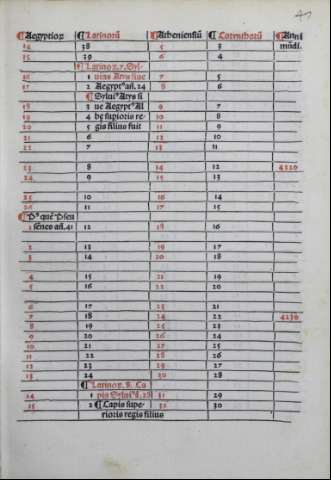 ¶Aegyptioꝝ ¶Latinorū Atheniensiū ¶Corinthiorū ¶Anni
mūdi.
14 38 5 3
15 39 6 4
¶Latinoꝝ.7. Syl-
16 1 uius Atys siue 7 5
17 2 Aegypt⁹ añ.24 8 6
¶Sylui⁹ Atys si
18 3 ue Aegypt⁹ Al 9 7
19 4 bę supioris re- 10 8
20 5 gis filius fuit 11 9
21 6 12 10
22 7 13 11
23 8 14 12 4220
24 9 15 13
25 10 16 14
26 11 17 15
¶
1 senes añ.41 12 18 16
2 13 19 17
3 14 20 18
4 15 21 19
5 16 22 20
6 17 23 21
7 18 24 22 4230
8 19 25 23
9 20 26 24
10 21 27 25
11 22 28 26
12 23 29 27
13 24 30 28
¶Latinoꝝ.8. Ca
14 1 pis Sylui⁹.28 31 29
15 2 ¶Capis supe- 32 30
rioris regis filius